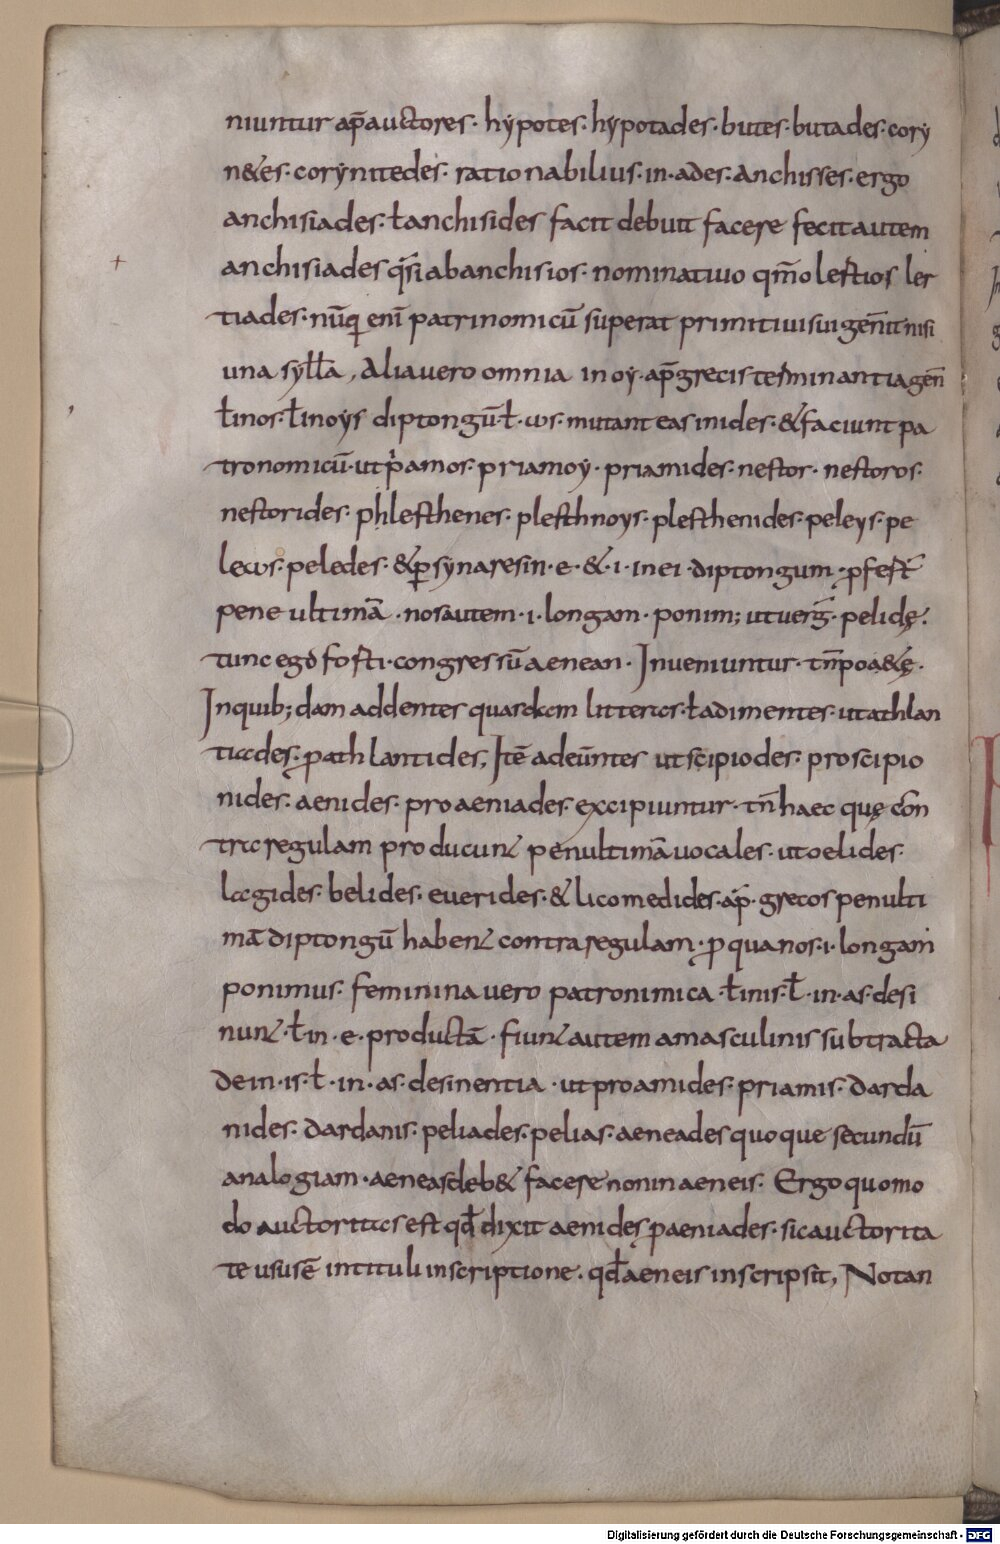 niuntur ap̄ auctores · hẏpotes · hẏpotades · butes · butades · corẏ
n&es · corẏnitedes · rationabilius · in · ades · Anchisses · ergo
anchisiades · ł anchisides facit debuit facere fecit autem
anchisiades q̅si ab anchisios · nominatiuo qm̄o lertios ler
tiades · nūq enī patrinomicū superat primitiui sui gen̄it nisi
una syłła, Alia uero omnia in oẏ · ap̄ grecis terminantia gen̄
ł inos · ł in oẏs diptongū · ł · ωs · mutant eas in ides · & faciunt pa
tronomicū · ut p̍amos · priamoẏ · priamides · nestor · nestoros ·
nestorides · phlesthenes · plesthnoys · plesthenides · peleys · pe
leωs · peledes · & ꝑ synaresin · e · & · i · in ei · diptongum · ꝓfert̄
pene ultimā · nos autem · i · longam · ponim; ut uerg̅ · pelidę ·
tunc ego forti · congressū aenean · Inueniuntur · tn̄ poa&ę ·
Inquib; dam addentes quasdam litteras · ł adimentes · ut athlan
tiades · ꝓ athlantides, Itē adeūntes ut scipiodes · pro scipio
nides · aenides · pro aeniades · excipiuntur · tn̄ haec quę con
tra regulam producunt penultimā uocales · ut oelides ·
lagides · belides · euerides · & licomedides · ap̄ · grecos penulti
mā diptongū habent contra regulam · ꝓ qua nos · i · longam
ponimus · feminina uero patronimica · ł in is · ł · in · as · desi
nunt · ł in · e · productā · fiunt autem a masculinis subtracta
de in · is · ł · in · as · desinentia · ut proamides · priamis · darda
nides · dardanis · peliades · pelias · aeneades quoque secundū
analogiam · aeneas deb& facere non in aeneis · Ergo quomo
do auctoritas est qđ dixit aenides ꝓ aeniades · sic auctorita
te usus ē in tituli inscriptione · qđ aeneis inscripsit, Notan
Digitalisierung gefördert durch die Deutsche Forschungsgemeinschaft - DFG